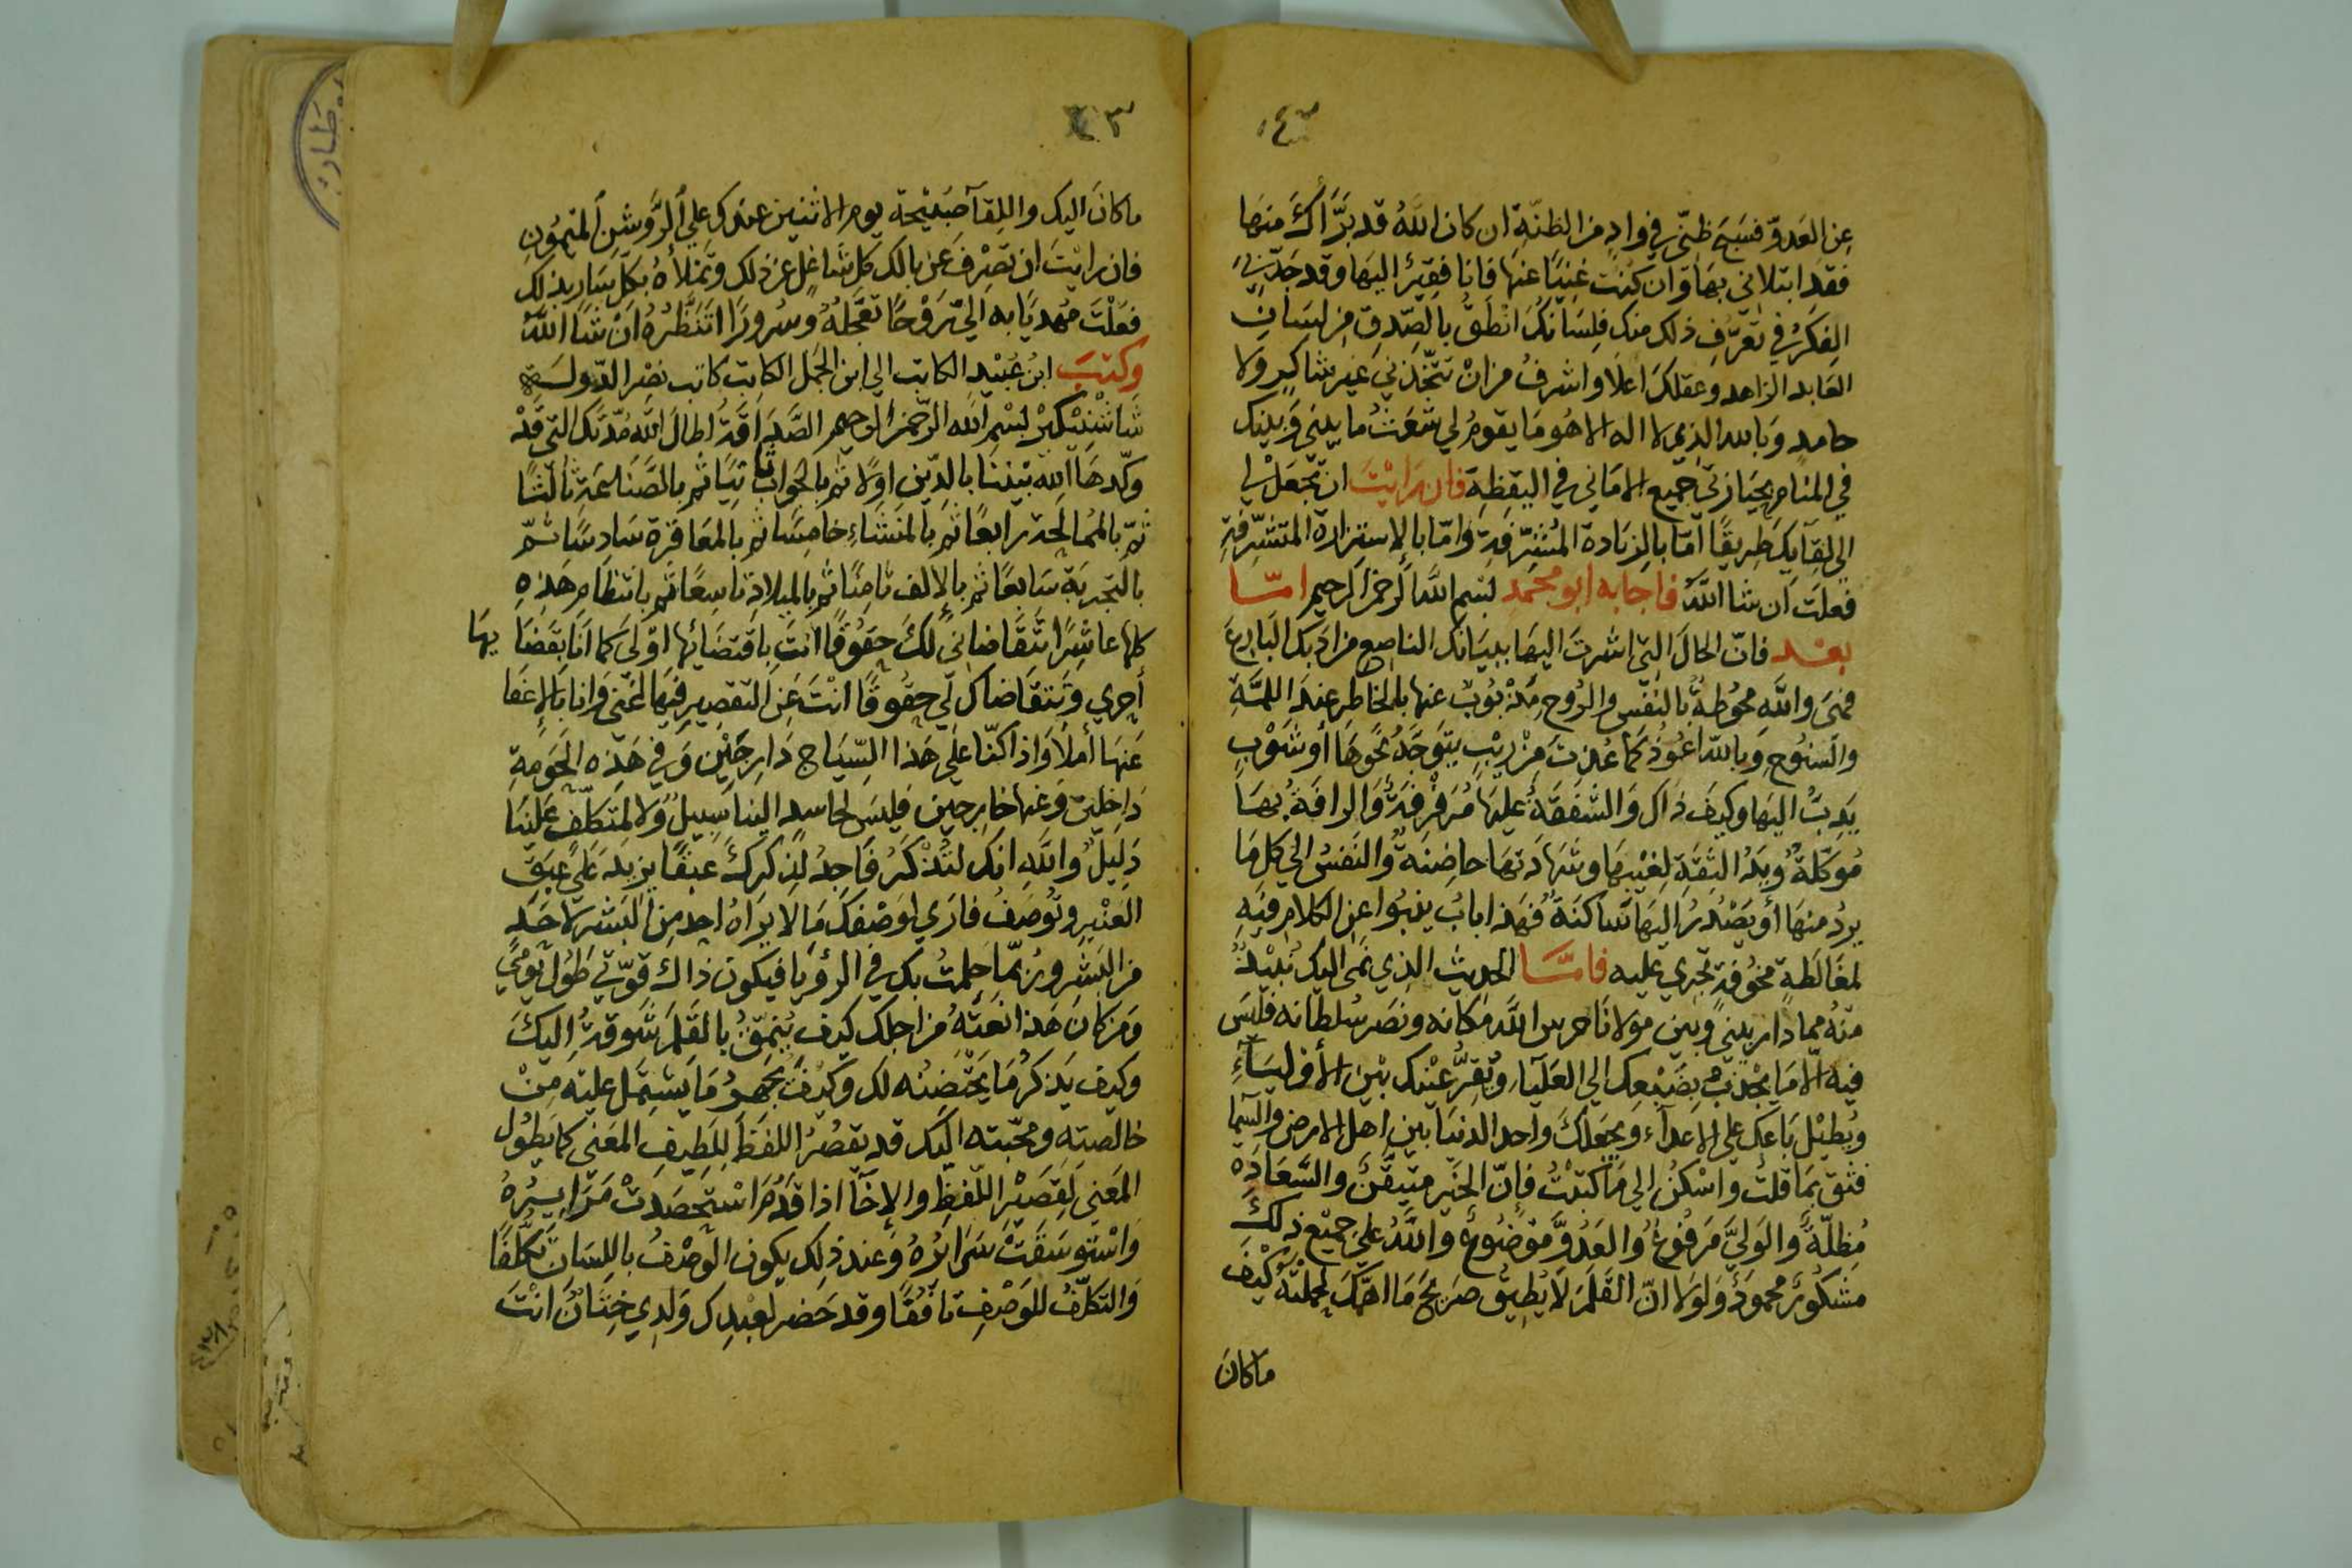 عن العَدوّ فسَبَحَ ظنّي في وادٍ من الظنّةِ ان كان اللهُ قد بَرَّأكَ منهَا
فقدَ ابتلاني بهَا وَان كنُت غنِيًا عنهَا فانا فقِيرٌ اليَها وقد جَدّ بيَ
الفِكرُ في تعَرُّفِ ذلك منك فلِسَانكَ انطَقُ بالصِّدقِ مِن لسَانِ
العَابد الزاهد وعقلكَ اعلَا واشرفُ من انْ تتّخِذَني غيرَ شاكِرٍ ولَا
حامدٍ وَبالله الذي لا اله الا هُو مَا يقومُ لي شعَثُ ما بيني وَبينك
في المنام بحيَازتي جميع الامَاني في اليقظِة فان رَايْتَ ان تجَعَلْ لي
الى لقِآيِكَ طِريقًا امّا بالزيَادة المُشَرِّفَةِ وَامّا بالإستزارة المتشرّفةِ
فعلَتَ ان شا اللهُ فاجابه ابو محمد بسم اللهَ الرحمن الرحيم امّا
بعْد فانّ الحالَ التِي اشرتَ اليهَا ببيَانكَ الناصِع من ادَبكَ البَارعَ
فهيَ واللهِ محوُطةٌ بالنفس والروُحِ مَذْبوُبٌ عنها بالخاطِر عِندَ اللمَّةِ
والسنوُح وَباللهِ اعوُذ كمَا عُذتَ مِنْ ريْبٍ يتَوَجَّهُ نحوهَا أو شوْبٍ
يَدِبُّ اليَها وكيفَ ذاك وَالشفَقةُ عليَها مُرَفرِفَةٌ وَالرافَةُ بهَا
مُوكَّلةٌ وُيَدُ الثِقةِ لغيْبها وشهَادَتهَا حاضِنةٌ والنَفسُ الي كلِ مَا
يردُ منهَا أو يَصْدُرُ اليهَا سَاكنَةٌ فهَذا بابُ ينبُوا عن الكلام فيهِ
لمغَالَطةٍ مخوُفةٍ تجري عليه فامَّا الحديث الذِي نمَى اليك نُبَيْذٌ
منهُ مما دار بيني وبين مولانَا حرس اللهَ مكانه ونصَر سُلطانه فلَيسَ
فيه الا مَا يجْذبُ بِضَبْعِك الي العَلَيَا وتقِرُّ عيْنك بيْن الأوْليَآءِ
ويُطيْل بَاعَك علي الاعدآءِ ويجعلكَ واحد الدنيَا بين اهل الارض والسّما
فثق بمَا قلتُ واسْكنْ الي مَا كتبْتُ فإنّ الخيَر متيَقّنٌ والسَّعَادَةَ
مُظِلّةٌ والوَليَّ مَرفوُعٌ والعَدُوَّ موَضوُعٌ واللهُ علي جميْع ذلكَ
مشكوُرٌ محموُدٌ وَلوَلا انّ القَلمَ لَا يُطِيقُ صَريحَ مَا اهمّكَ لجملتُهُ كيْفَ
ماكان
٤٣
ماكانَ اليك واللِقآ صَبُيْحة يوم الاثنين عندك علي الرَّوشنِ الميموُنِ
فان رايْتَ ان تصَرْفَ عن بالك كل شاغلٍ عن ذلك وتملأهُ بكلّ سَارٍ بذلك
فعَلْتَ مُهديًا به اليَّ رَوْحًا تعَجَّلُهُ وسُرورًا اتنظَّرُهُ انْ شَا اللهُ
وكتبَ ابن عُبَيْد الكاتب الي ابن الجَمل الكاتب كاتب نصر الدّولـة
شاشْنيْكيْر بسْم الله الرحمن الرحيم الصَّدَاقةُ اطالَ اللهُ مُدّتك التي قَدْ
وكّدهَا الله بيْننَا بالدّينِ اوّلًا ثم بالجَوابِ ثانيًا ثم بالصّنَاعَةِ ثالثًا
ثمّ بالممُالحة رابعًا ثم بالمنشاءِ خامِسًا ثم بالمعَاقرَة سَادسًا ثمّ
بالتجربَة سَابعًا ثم بالإلف ثامِنًا ثم بالميلادَ تاسِعًا ثم بانتظام هَذهِ
كلها عاشِرًا تتقاضاني لكَ حقوُقًا انتَ باقتضَائها اوْلَى كما انَا بقَضَا يها
أحرى وَتتقَاضاك لي حقوقًا انْتَ عن التقصِير فيَها لغَنيٌ وَانا بالإغفا
عَنهَا أملأ وَاذا كنّا علي هَذا السِّيَاج دَارجيْن وَفي هَذه الحَومةِ
دَاخِلين وَعنها خارجين فليسَ لحاسدٍ الينا سِبيلٌ وَلا لمتكلّفٍ علَينا
دَليلٌ وَاللهِ انك لتُذْكَرُ فاجدُ لذِكركَ عبقًا يزيدَ علي عبَقِ
العَنْبرِ وتوُصَفُ فارَي لوَصْفِكَ مَا لا يرَاهُ احد مِن البَشر لاحَدٍ
من البَشر ورُبّما حلِمتُ بك في الرؤيا فيكون ذاك قوّتي طوُل يومي
وَمن كان هَذا نعتُهُ من اجلك كيف يُنمِّقُ بالقَلم شوقهُ اليكَ
وكيف يَذكرُ مَا يحتَضنُه لك وكيفَ يجهرُ مَا يشتمل عليْه مِنْ
خالصَتِهِ ومحبّتِه اليك قد يقصُرُ اللفَظُ لِلَطيفِ المعَنى كما يطوُل
المعَني لِقصَيْر اللفظِ والإخآ اذا قَدُم استحَصَدتْ مَرَايرُهُ
وَاسْتوسَقَتْ سَرايرُهُ وَعند ذلك يكون الوَصْفُ باللِسَان تكلّفًا
وَالتكلّفُ للوَصْفِ نافقًا وقد حَضر لعبْدِك وَلدِي ختانٌ انْتَ